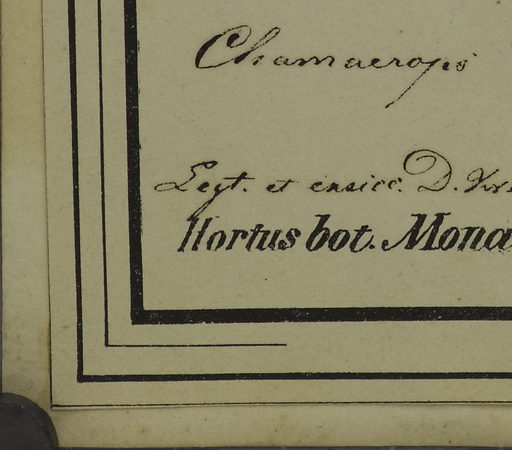 Chamaerops
Legt. et exsicc. D.
Hortus bot. Mona